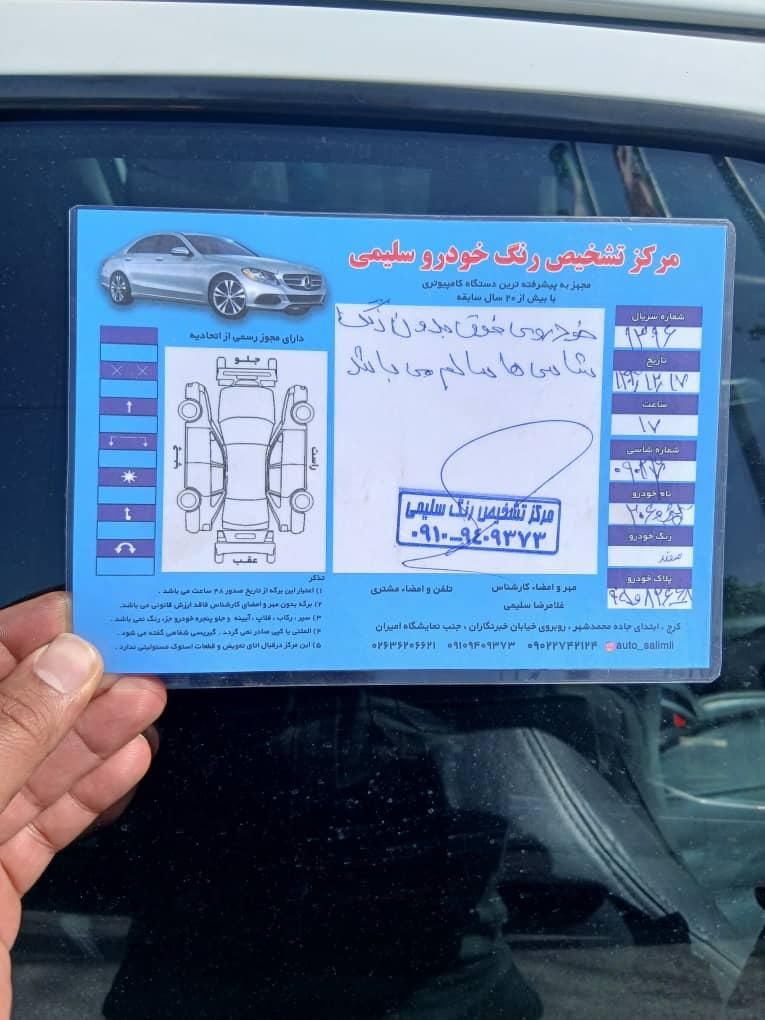 مرکز تشخیص رنگ خودرو سلیمی
مجهز به پیشرفته ترین دستگاه کامپیوتری
با بیش از ۲۰ سال سابقه
دارای مجوز رسمی از اتحادیه
جلو
چپ
راست
عقب
خودروی فوق بدون رنگ
شاسی ها سالم می باشد
مرکز تشخیص رنگ سلیمی
۰۹۱۰-۹۴۰۹۳۷۳
شماره سریال
۹۳۹۶
تاریخ
ساعت
۱۷
شماره شاسی
نام خودرو
رنگ خودرو
سفید
پلاک خودرو
تذکر
۱) اعتبار این برگه از تاریخ صدور ۴۸ ساعت می باشد .
۲) برگه بدون مهر و امضای کارشناس فاقد ارزش قانونی می باشد.
۳) سپر ، رکاب ، قلاپ ، آیینه و جلو پنجره خودرو جزء رنگ نمی باشد .
۴) المثنی یا کپی صادر نمی گردد . گیربسی شفاهی گفته می شود .
۵) این مرکز درقبال اتاق تعویض و قطعات استوک مسئولیتی ندارد .
مهر و امضاء کارشناس
غلامرضا سلیمی
تلفن و امضاء مشتری
کرج ، ابتدای جاده محمدشهر ، روبروی خیابان خبرنگاران ، جنب نمایشگاه امیران
۰۲۶۳۶۲۰۶۶۲۱ ۰۹۱۰۹۴۰۹۳۷۳ ۰۹۰۲۲۷۴۲۱۲۴ auto_salimii